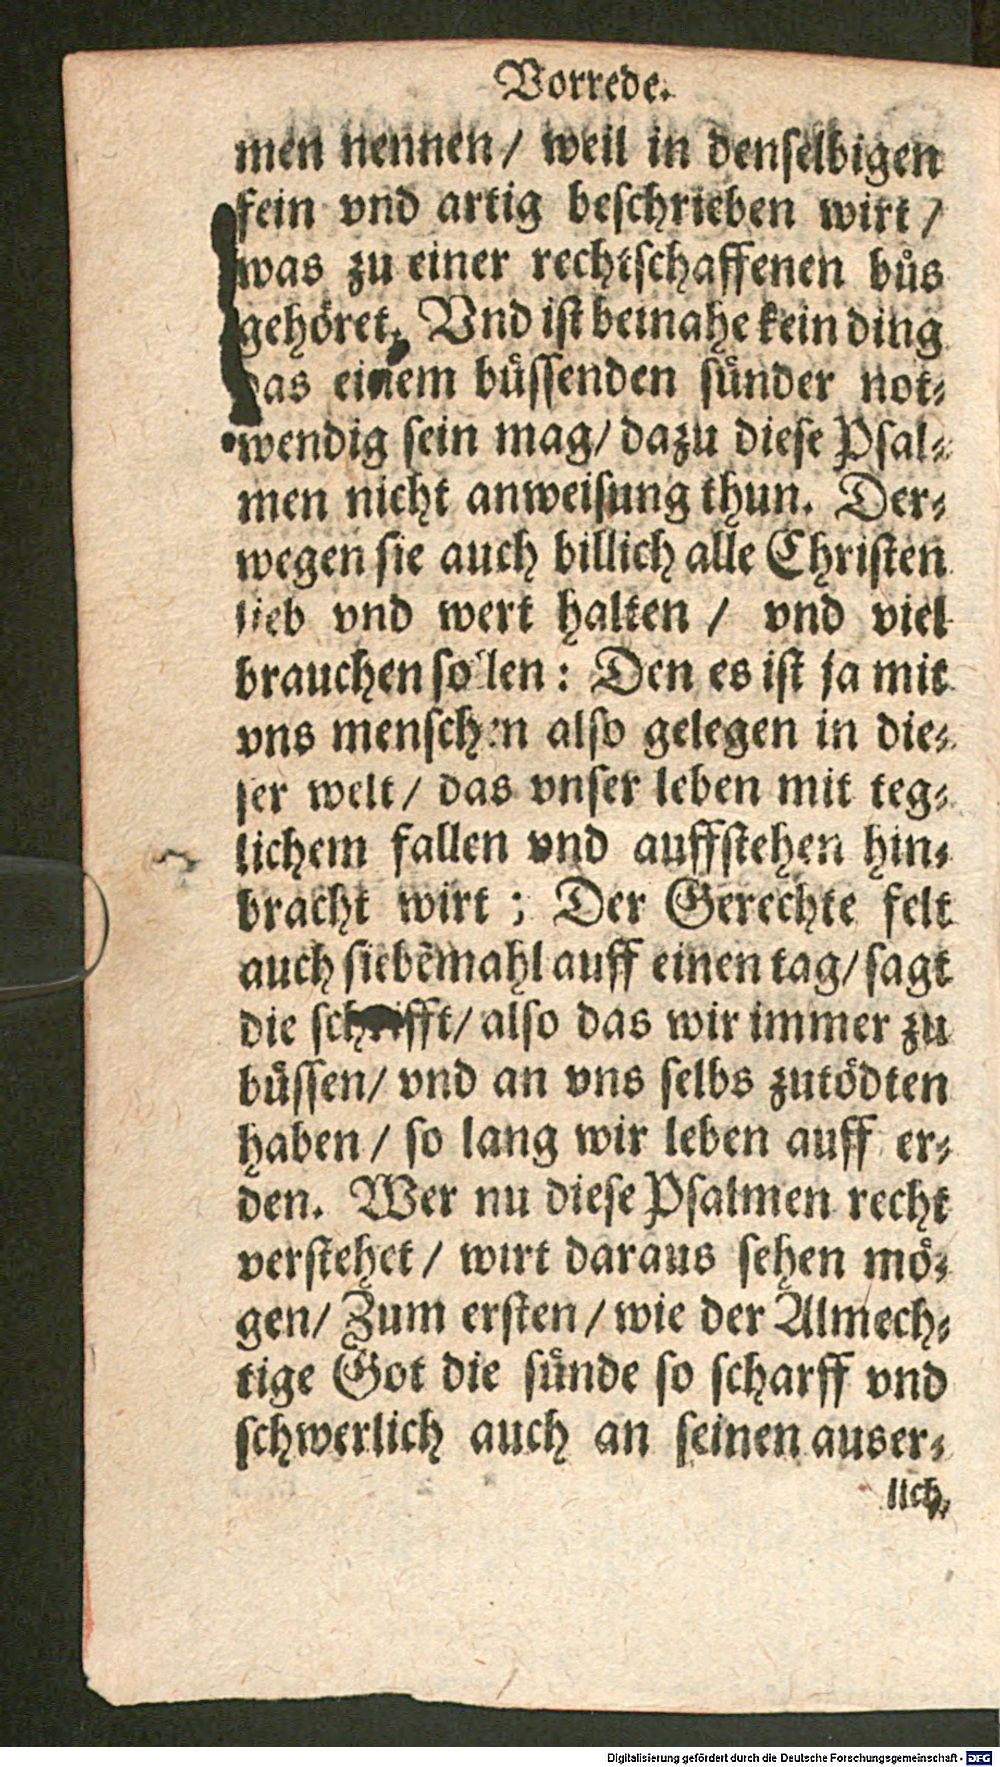 Vorrede.
men nennen / weil in denſelbigen
fein vnd artig beſchrieben wirt /
was zu einer rechtſchaffenen buͤs
gehoͤret. Vnd iſt beinahe kein ding
das einem buͤſſenden ſuͤnder not⸗
wendig ſein mag / dazu dieſe Pſal⸗
men nicht anweiſung thun. Der⸗
wegen ſie auch billich alle Chriſten
lieb vnd wert halten / vnd viel
brauchen ſollen : Den es iſt ja mit
vns menſchen alſo gelegen in die⸗
ſer welt / das vnſer leben mit teg⸗
lichem fallen vnd auffſtehen hin⸗
bracht wirt ; Der Gerechte felt
auch ſiebẽmahl auff einen tag / ſagt
die ſchrifft / alſo das wir immer zu
buͤſſen / vnd an vns ſelbs zutoͤdten
haben / ſo lang wir leben auff er⸗
den. Wer nu dieſe Pſalmen recht
verſtehet / wirt daraus ſehen moͤ⸗
gen / Zum erſten / wie der Almech⸗
tige Got die ſuͤnde ſo ſcharff vnd
ſchwerlich auch an ſeinen auser⸗
lich⸗
Digitalisierung gefördert durch die Deutsche Forschungsgemeinschaft - DFG